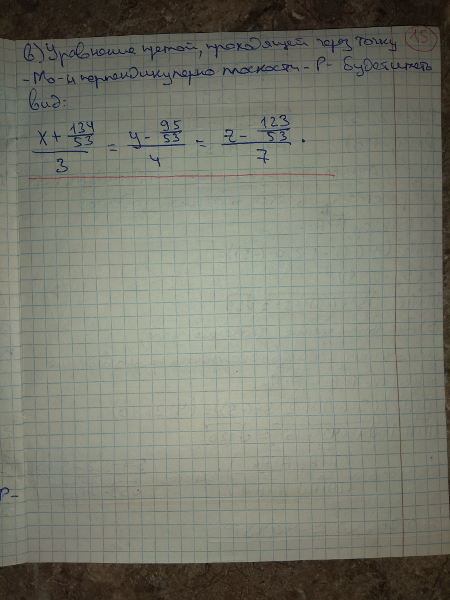 15
в) Уравнение прямой, проходящей через точку
-М₀- и перпендикулярно плоскости -Р- будет иметь
вид:
(x + 134/53)/3 = (y - 95/53)/4 = (z - 123/53)/7 .
Р-